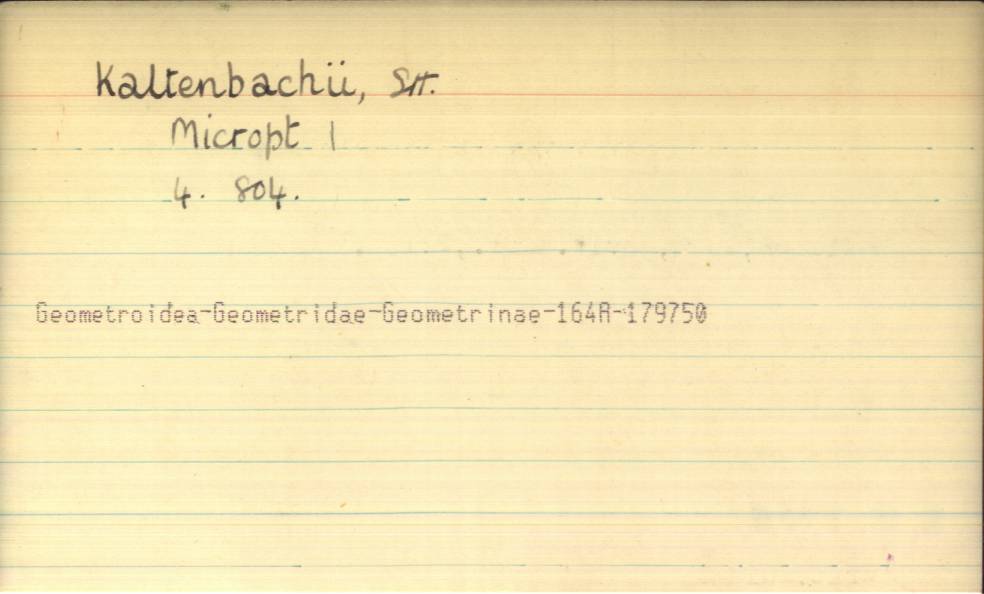 Kaltenbachii, Stt.
Micropt 1
4. 804.
Geometroidea-Geometridae-Geometrinae-164A-179750